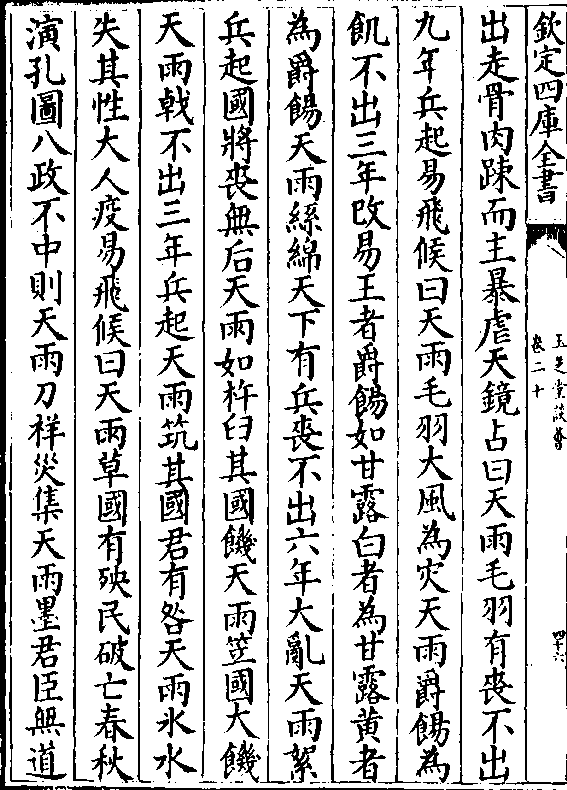 欽定四庫全書
玉芝堂談薈
卷二十
四十六
出走骨肉踈而主暴虐天鏡占曰天雨毛羽有喪不出
九年兵起易飛候曰天雨毛羽大風為灾天雨爵餳為
飢不出三年改易王者爵餳如甘露白者為甘露黄者
為爵餳天雨絲綿天下有兵喪不出六年大亂天雨絮
兵起國將喪無后天雨如杵臼其國饑天雨笠國大饑
天雨戟不出三年兵起天雨筑其國君有咎天雨氷水
失其性大人疫易飛候曰天雨草國有殃民破亡春秋
演孔圖八政不中則天雨刀祥災集天雨墨君臣無道